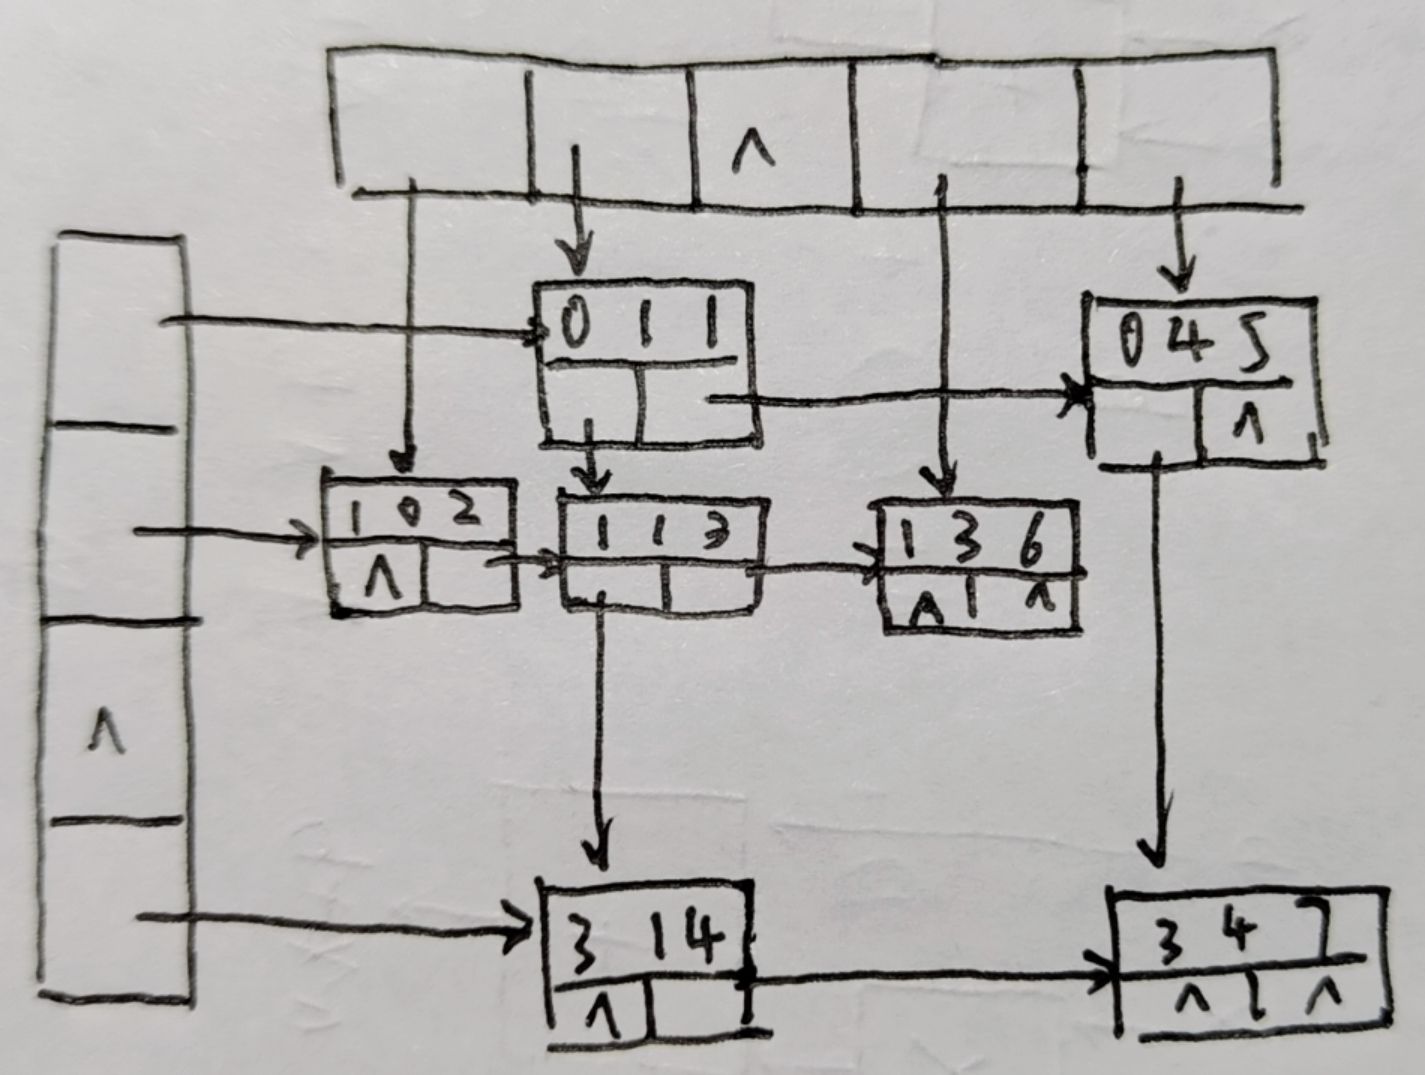 ∧
0 1 1
0 4 5
∧
1 0 2
1 1 3
1 3 6
∧
∧ ∧
∧
3 1 4
3 4 7
∧
∧ ∧